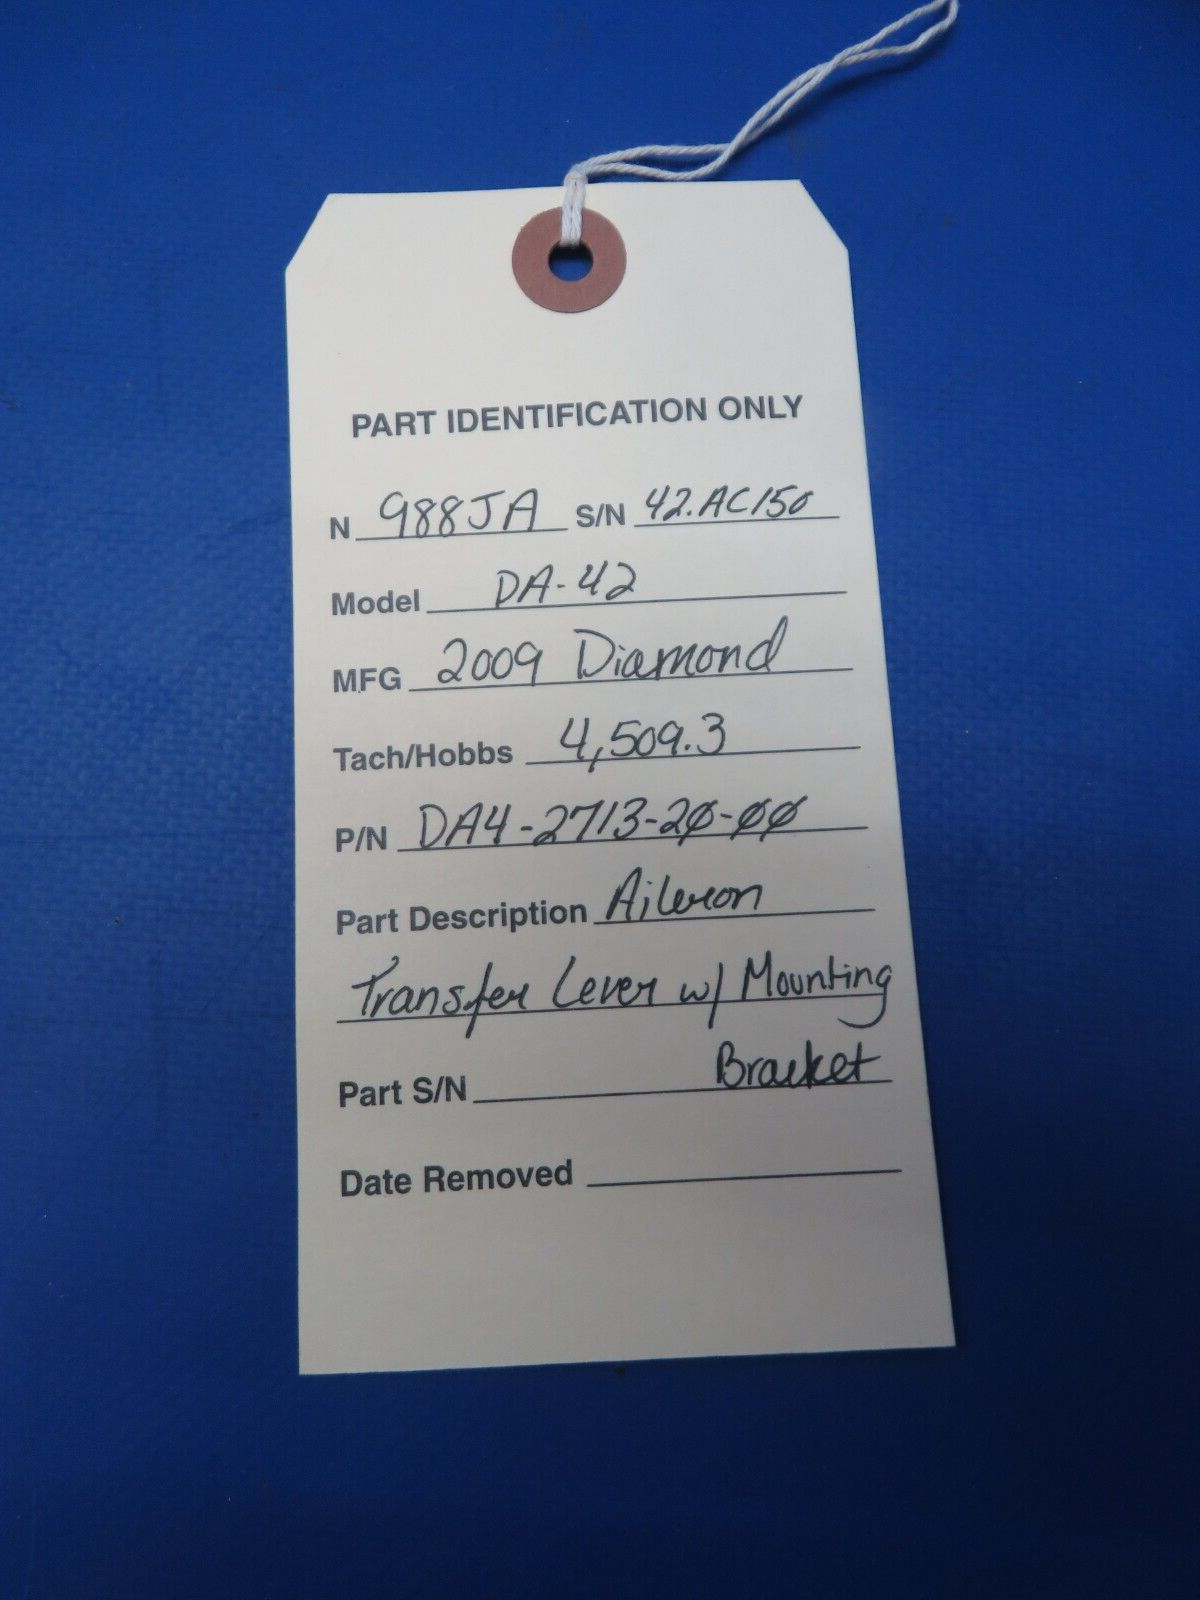 PART IDENTIFICATION ONLY
N 988JA S/N 42.AC150
Model DA-42
MFG 2009 Diamond
Tach/Hobbs 4,509.3
P/N DA4-2713-20-00
Part Description Aileron
Transfer Lever w/ Mounting
Part S/N Bracket
Date Removed